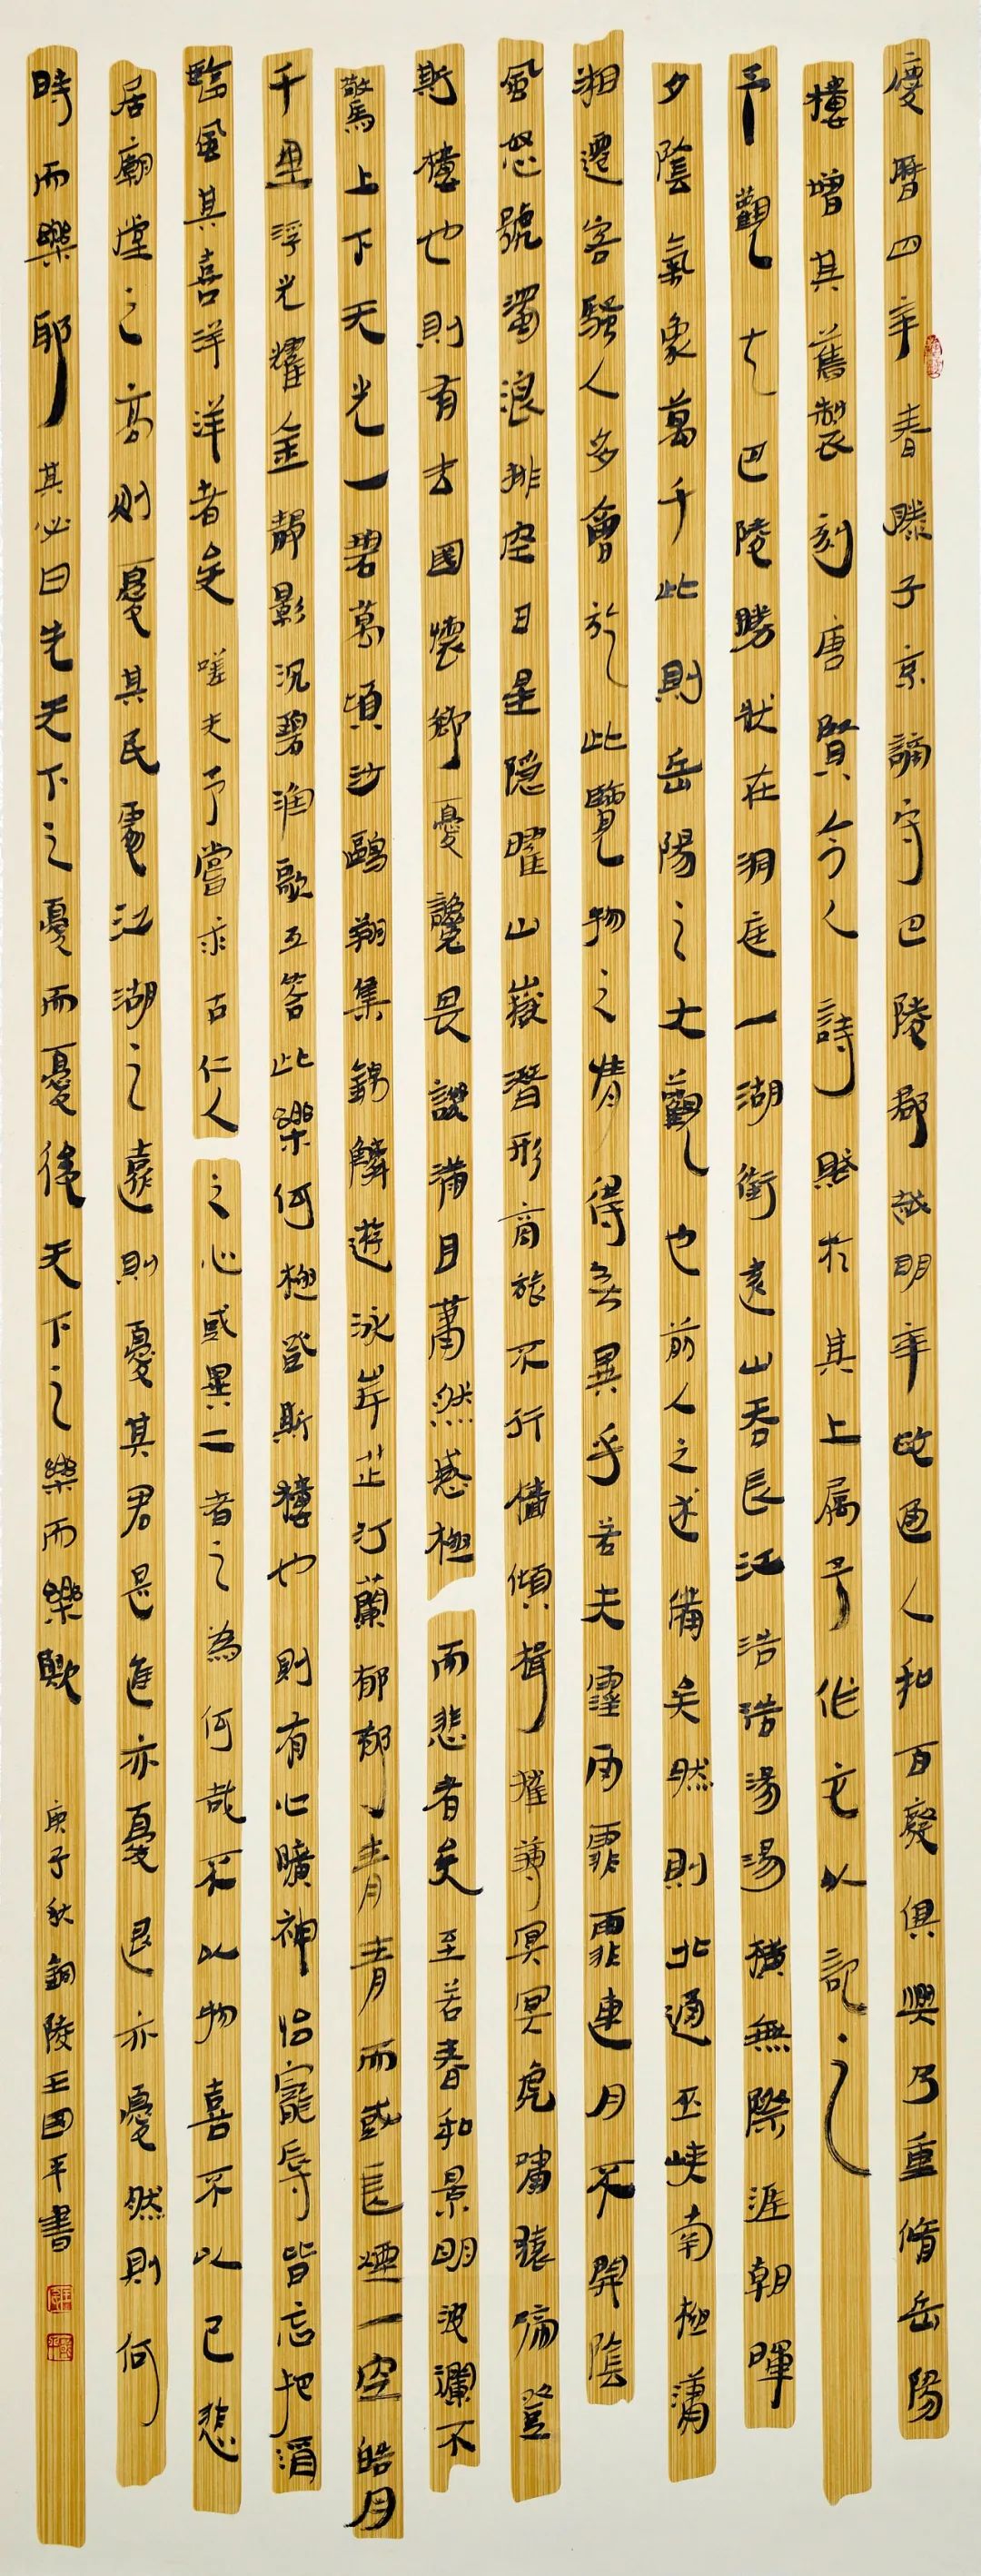 慶曆四年春滕子京謫守巴陵郡越明年政通人和百廢俱興乃重脩岳陽
樓增其舊製刻唐賢今人詩賦於其上屬予作文以記之
予觀夫巴陵勝狀在洞庭一湖銜遠山吞長江浩浩湯湯橫無際涯朝暉
夕陰氣象萬千此則岳陽之大觀也前人之述備矣然則北通巫峽南極瀟
湘遷客騷人多會於此覽物之情得無異乎若夫霪雨霏霏連月不開陰
風怒號濁浪排空日星隱曜山嶽潛形商旅不行檣傾楫摧薄冥冥虎嘯猿啼登
斯樓也則有去國懷鄉憂讒畏譏滿目蕭然感極而悲者矣至若春和景明波瀾不
驚上下天光一碧萬頃沙鷗翔集錦鱗遊泳岸芷汀蘭郁郁青青而或長煙一空皓月
千里浮光耀金靜影沉碧漁歌互答此樂何極登斯樓也則有心曠神怡寵辱皆忘把酒
臨風其喜洋洋者矣嗟夫予嘗求古仁人之心或異二者之為何哉不以物喜不以己悲
居廟堂之高則憂其民處江湖之遠則憂其君是進亦憂退亦憂然則何
時而樂耶其必曰先天下之憂而憂後天下之樂而樂歟 庚子秋銅陵王國平書